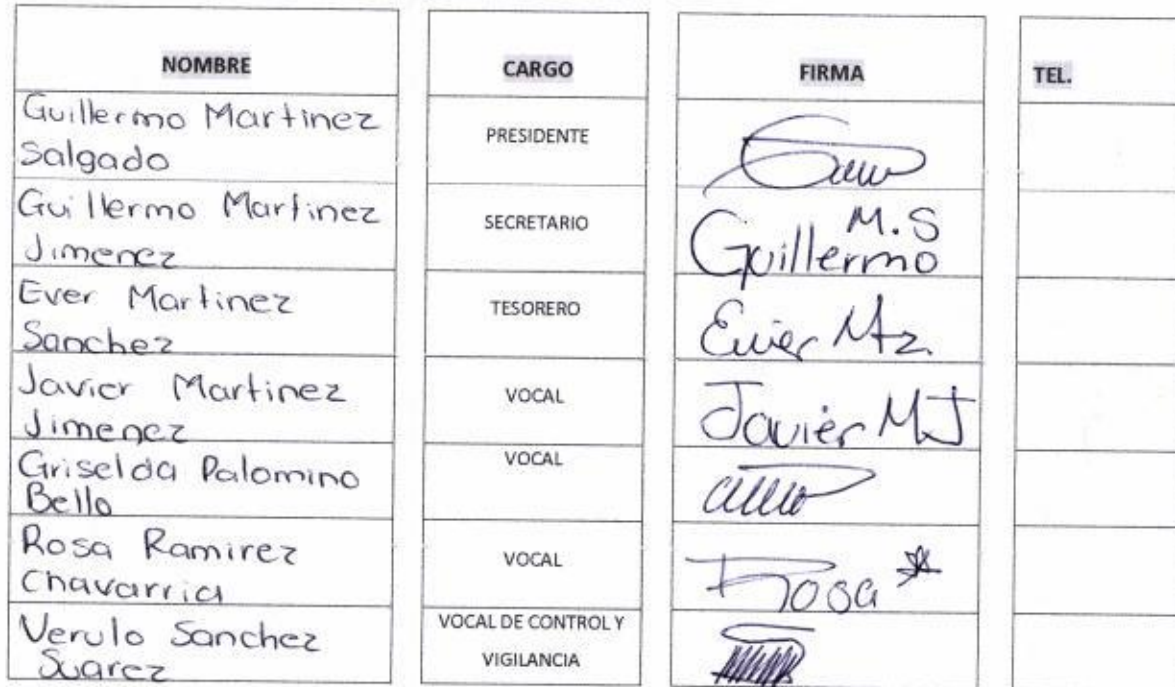 NOMBRE CARGO FIRMA TEL.
Guillermo Martinez
Salgado
PRESIDENTE
Guillermo Martinez
Jimenez
SECRETARIO
M.S
Guillermo
Ever Martinez
Sanchez
TESORERO
Ever Mtz.
Javier Martinez
Jimenez
VOCAL
Javier MJ
Griselda Palomino
Bello
VOCAL
Rosa Ramirez
Chavarria
VOCAL
Rosa
Verulo Sanchez
Suarez
VOCAL DE CONTROL Y
VIGILANCIA